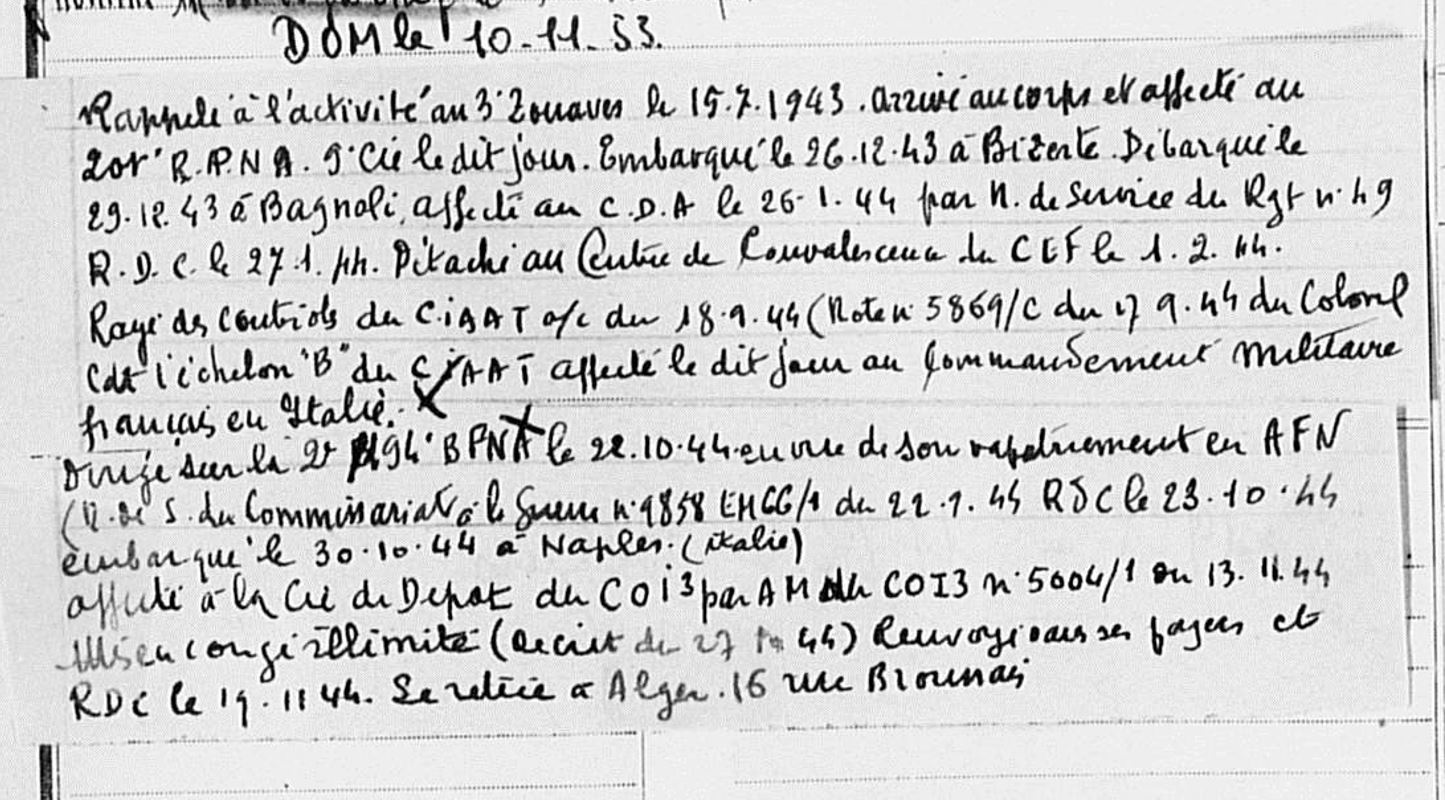 DOM le 10-11-53.
Rappelé à l'activité au 3° Zouaves le 15.7.1943. arrivé au corps et affecté au
201° R.P.N.A. 9° Cie le dit jour. Embarqué le 26.12.43 à Bizerte. Débarqué le
29.12.43 à Bagnoli, affecté au C.D.A le 26-1.44 par N. de Service du Rgt n° 49
R.D.C. le 27.1.44. Détaché au Centre de Convalescence du CEF le 1.2.44.
Rayé des contrôles du C.iAAT a/c du 18.9.44 (Note n° 5869/C du 17 9.44 du Colonel
Cdt l'échelon "B" du CiAAT affecté le dit jour au Commandement Militaire
français en Italie. X
Dirigé sur la 94° BPNA le 22.10.44 en vue de son rapatriement en AFN
(N. de S. du Commissariat à la Guerre n° 9858 EMGG/1 du RDC le 23.10.44
embarqué le 30.10.44 à Naples. (italie)
affecté à la Cie de Depot du COI3 par AM du COI3 n° 5004/1 du 13.11.44
Mis en congé illimité (decret du 27 44) Renvoyé dans ses foyers et
RDC le 19.11 44. Se retire à Alger. 16 rue Broussais